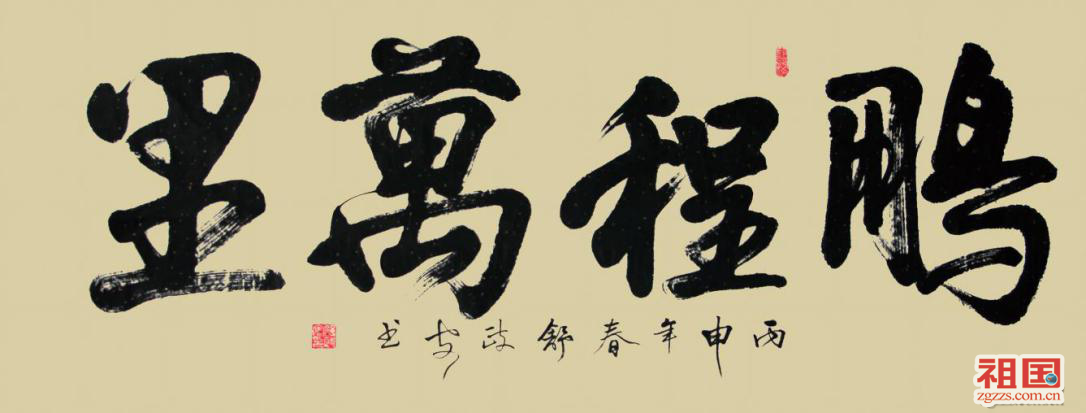 鵬程萬里
丙申年春舒政安书
祖国
zgzzs.com.cn